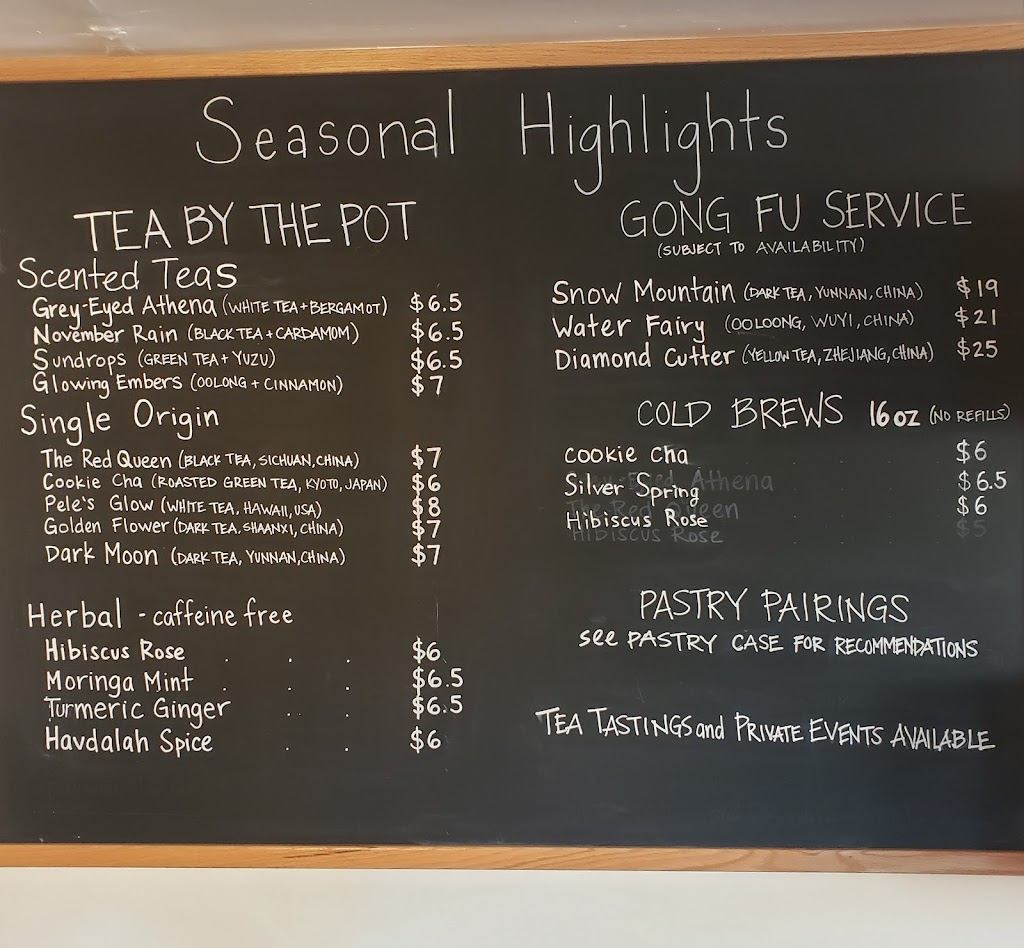 Seasonal Highlights
TEA BY THE POT
Scented Teas
Grey-Eyed Athena (WHITE TEA + BERGAMOT) $6.5
November Rain (BLACK TEA + CARDAMOM) $6.5
Sundrops (GREEN TEA + YUZU) $6.5
Glowing Embers (OOLONG + CINNAMON) $7
Single Origin
The Red Queen (BLACK TEA, SICHUAN, CHINA) $7
Cookie Cha (ROASTED GREEN TEA, KYOTO, JAPAN) $6
Pele's Glow (WHITE TEA, HAWAII, USA) $8
Golden Flower (DARK TEA, SHAANXI, CHINA) $7
Dark Moon (DARK TEA, YUNNAN, CHINA) $7
Herbal - caffeine free
Hibiscus Rose . . . $6
Moringa Mint . . . $6.5
Turmeric Ginger . . . $6.5
Havdalah Spice . . $6
GONG FU SERVICE
(SUBJECT TO AVAILABILITY)
Snow Mountain (DARK TEA, YUNNAN, CHINA) $19
Water Fairy (OOLOONG, WUYI, CHINA) $21
Diamond Cutter (YELLOW TEA, ZHEJIANG, CHINA) $25
COLD BREWS 16 oz (NO REFILLS)
Cookie Cha $6
Silver Spring $6.5
Hibiscus Rose $6
Athena
The Red Queen
Hibiscus Rose $5
PASTRY PAIRINGS
see PASTRY CASE FOR RECOMMENDATIONS
TEA TASTINGS and PRIVATE EVENTS AVAILABLE